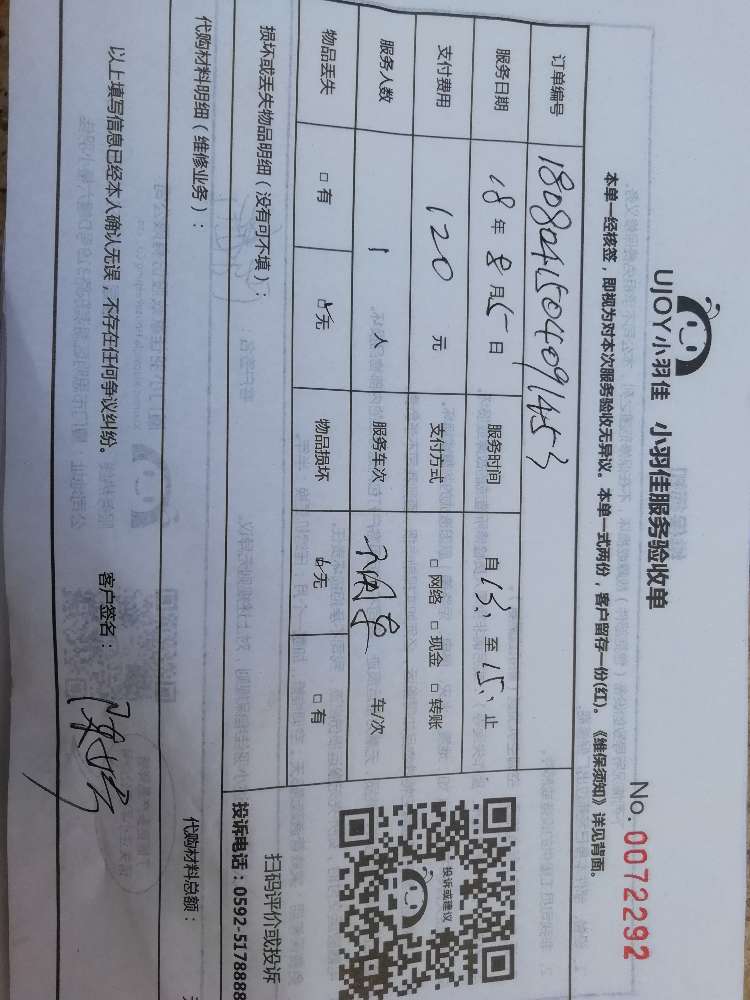 UJOY小羽佳 小羽佳服务验收单
No. 0072292
本单一经核签，即视为对本次服务验收无异议。本单一式两份，客户留存一份(红)。《维保须知》详见背面。
订单编号 1808041504091453
服务日期 18年8月5日 服务时间 自13: 至15: 止
支付费用 120 元 支付方式 □网络 □现金 □转账
服务人数 1 人 服务车次 不用车 车/次
物品丢失 □有 □无 物品损坏 □无 □有
损坏或丢失物品明细（没有可不填）：
投诉或建议
扫码评价或投诉
投诉电话：0592-5178888
代购材料明细（维修业务）： 代购材料总额：
以上填写信息已经本人确认无误，不存在任何争议纠纷。 客户签名：